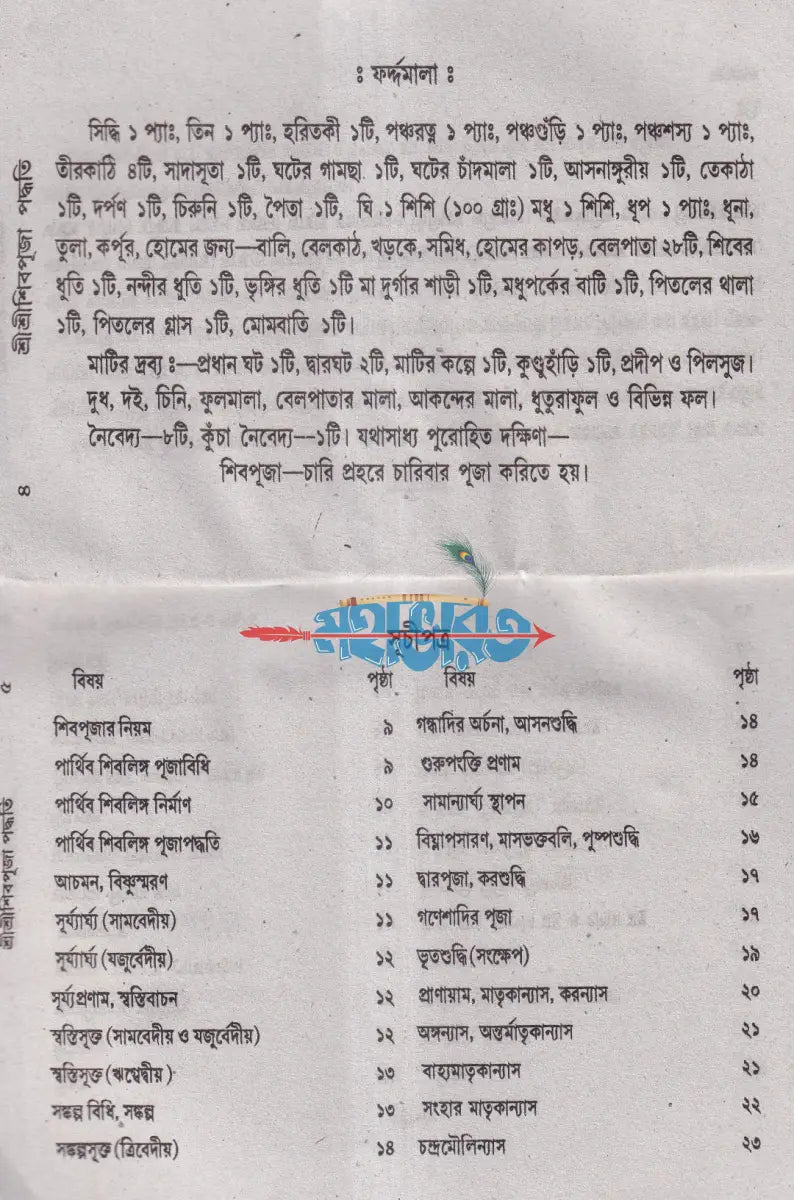 ঃ ফর্দ্দমালা ঃ
সিদ্ধি ১ প্যাঃ, তিন ১ প্যাঃ, হরিতকী ১টি, পঞ্চরত্ন ১ প্যাঃ, পঞ্চগুঁড়ি ১ প্যাঃ, পঞ্চশস্য ১ প্যাঃ,
তীরকাঠি ৪টি, সাদাসূতা ১টি, ঘটের গামছা ১টি, ঘটের চাঁদমালা ১টি, আসনাঙ্গুরীয় ১টি, তেকাঠা
১টি, দর্পণ ১টি, চিরুনি ১টি, পৈতা ১টি, ঘি ১ শিশি (১০০ গ্রাঃ) মধু ১ শিশি, ধূপ ১ প্যাঃ, ধুনা,
তুলা, কর্পূর, হোমের জন্য—বালি, বেলকাঠ, খড়কে, সমিধ, হোমের কাপড়, বেলপাতা ২৮টি, শিবের
ধূতি ১টি, নন্দীর ধূতি ১টি, ভৃঙ্গির ধূতি ১টি মা দুর্গার শাড়ী ১টি, মধুপর্কের বাটি ১টি, পিতলের থালা
১টি, পিতলের গ্লাস ১টি, মোমবাতি ১টি।
মাটির দ্রব্য ঃ—প্রধান ঘট ১টি, দ্বারঘট ২টি, মাটির কল্কে ১টি, কুণ্ডুহাঁড়ি ১টি, প্রদীপ ও পিলসূজ।
দুধ, দই, চিনি, ফুলমালা, বেলপাতার মালা, আকন্দের মালা, ধুতুরাফুল ও বিভিন্ন ফল।
নৈবেদ্য—৮টি, কুঁচা নৈবেদ্য--১টি। যথাসাধ্য পুরোহিত দক্ষিণা—
শিবপূজা—চারি প্রহরে চারিবার পূজা করিতে হয়।
শ্রীশ্রীশিবপূজা পদ্ধতি
৪
মহাভারত
সূচীপত্র
৫
শ্রীশ্রীশিবপূজা পদ্ধতি
বিষয় পৃষ্ঠা
শিবপূজার নিয়ম ৯
পার্থিব শিবলিঙ্গ পূজাবিধি ৯
পার্থিব শিবলিঙ্গ নির্মাণ ১০
পার্থিব শিবলিঙ্গ পূজাপদ্ধতি ১১
আচমন, বিষ্ণুস্মরণ ১১
সূর্য্যার্ঘ্য (সামবেদীয়) ১১
সূর্য্যার্ঘ্য (যজুর্বেদীয়) ১২
সূর্য্যপ্রণাম, স্বস্তিবাচন ১২
স্বস্তিসূক্ত (সামবেদীয় ও যজুর্বেদীয়) ১২
স্বস্তিসূক্ত (ঋগ্বেদীয় ) ১৩
সঙ্কল্প বিধি, সঙ্কল্প ১৩
সঙ্কল্পসূক্ত (ত্রিবেদীয়) ১৪
বিষয় পৃষ্ঠা
গন্ধাদির অর্চনা, আসনশুদ্ধি ১৪
গুরুপংক্তি প্রণাম ১৪
সামান্যার্ঘ্য স্থাপন ১৫
বিঘ্নাপসারণ, মাসভক্তবলি, পুষ্পশুদ্ধি ১৬
দ্বারপূজা, করশুদ্ধি ১৭
গণেশাদির পূজা ১৭
ভূতশুদ্ধি (সংক্ষেপ) ১৯
প্রাণায়াম, মাতৃকান্যাস, করন্যাস ২০
অঙ্গন্যাস, অন্তর্মাতৃকান্যাস ২১
বাহ্যমাতৃকান্যাস ২১
সংহার মাতৃকান্যাস ২২
চন্দ্রমৌলিন্যাস ২৩